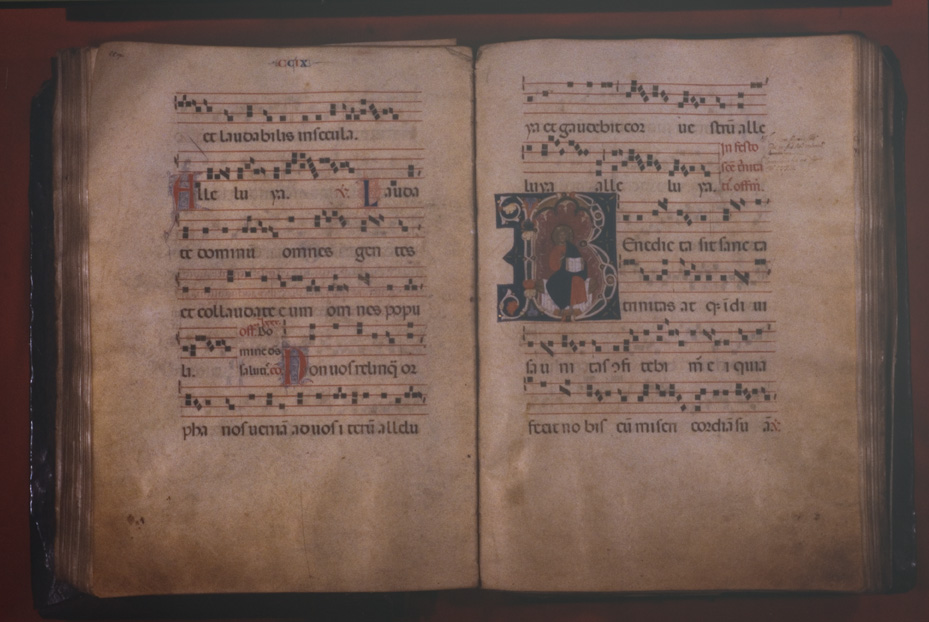 CCIX
et laudabilis in secula.
Alle lu ya. V. Lauda
te dominū omnes gen tes
et collaudate eum om nes popu
li. off. Do
mine ds
salut. cō Don uos relinq̄ or
pha nos ueniā ad uos i terū allelu
ya et gaudebit cor ue strū alle
luya alle lu ya. In festo
sce t̄nita
ti. offm.
BEnedic ta sit sanc ta
trinitas at q; īdi ui
sa u ni tas ↄfi tebi m e i quia
fecit no bis cū miseri cordiā su ā